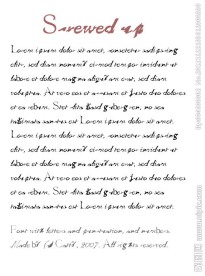 Screwed up
Lorem ipsum dolor sit amet, consetetur sadipscing
elitr, sed diam nonumy eirmod tempor invidunt ut
labore et dolore magna aliquyam erat, sed diam
voluptua. At vero eos et accusam et justo duo dolores
et ea rebum. Stet clita kasd gubergren, no sea
takimata sanctus est Lorem ipsum dolor sit amet.
Lorem ipsum dolor sit amet, consetetur sadipscing
elitr, sed diam nonumy eirmod tempor invidunt ut
labore et dolore magna aliquyam erat, sed diam
voluptua. At vero eos et accusam et justo duo dolores
et ea rebum. Stet clita kasd gubergren, no sea
takimata sanctus est Lorem ipsum dolor sit amet.
Font with letters and punctuation, and numbers.
Made by 2007. All rights reserved.